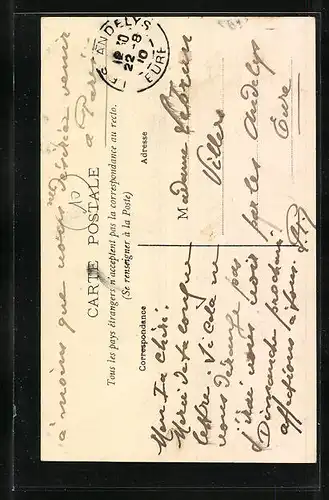 CARTE POSTALE
Tous les pays étrangers n'acceptent pas la correspondance au recto.
(Se renseigner à la Poste)
Correspondance
Adresse
LES ANDELYS
12 30
22-8
10
EURE
Mon La chère.
Merci de ta longue
lettre. Si cela ne
vous dérange pas
j'irai vous voir
Dimanche prochain
affections à tous.
à moins que vous désiriez venir
à Paris
Madame
Villers
par les Andelys
Eure